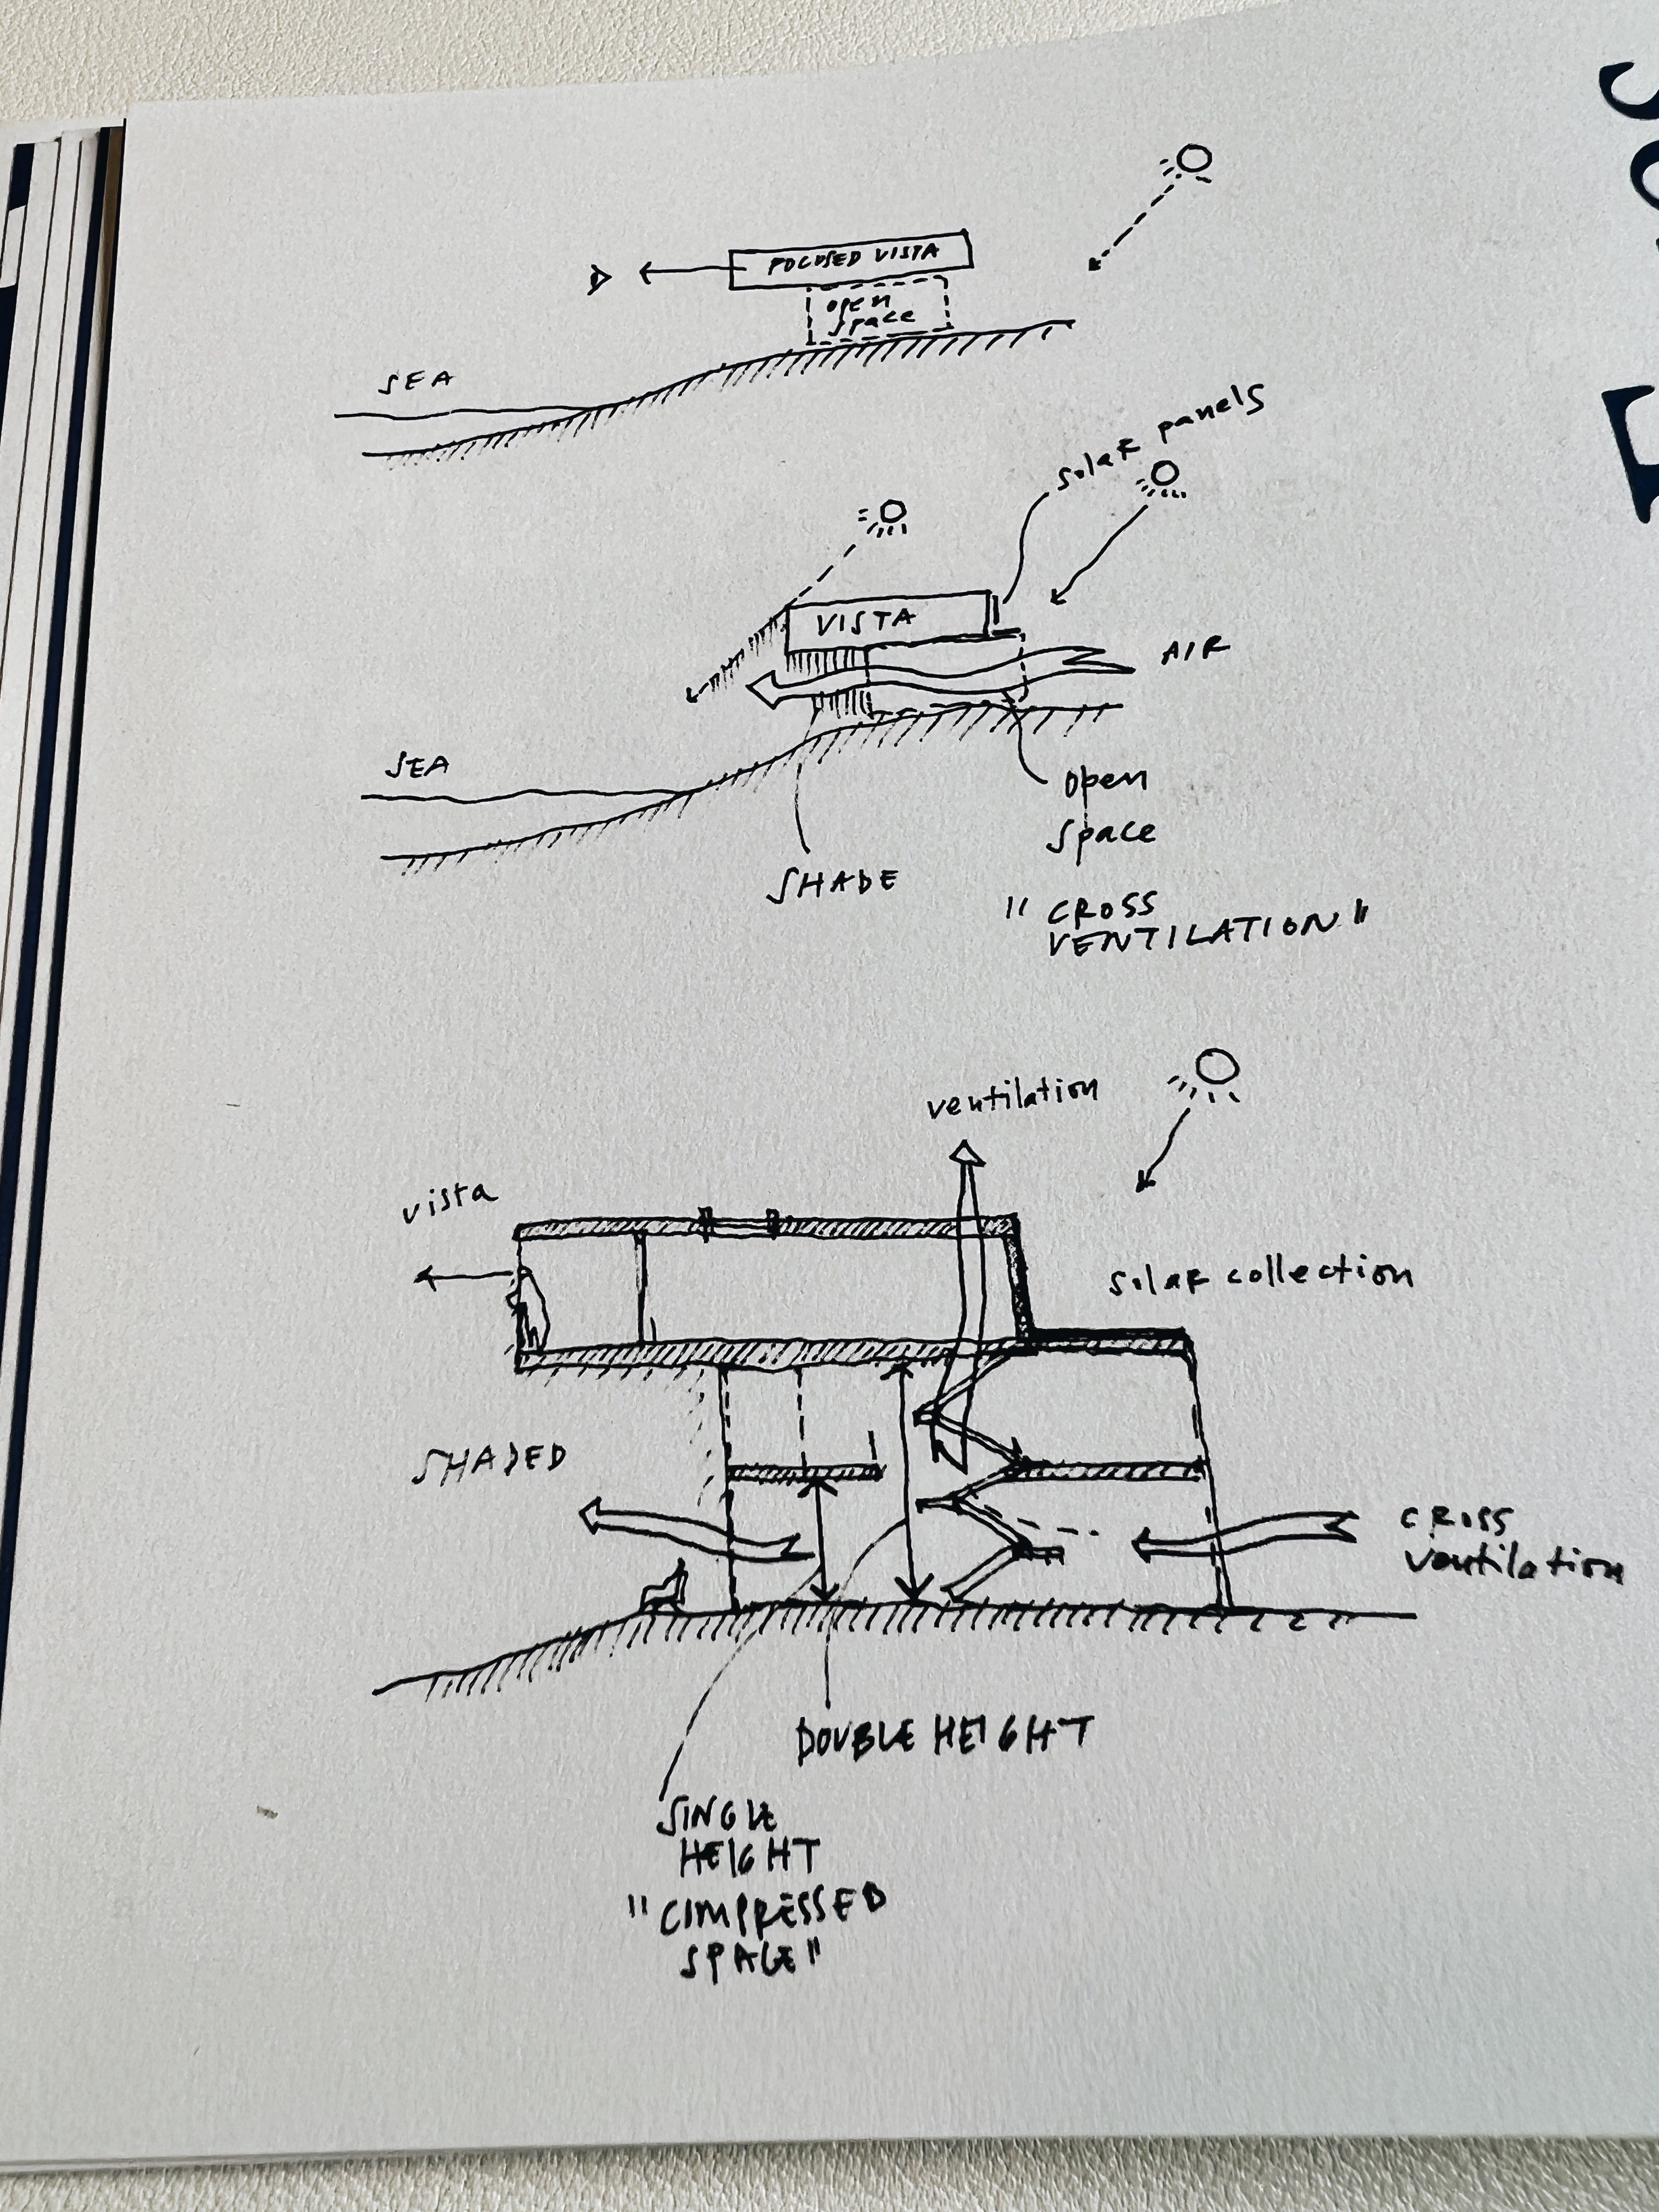 FOCUSED VISTA
open
space
SEA
solar panels
VISTA
AIR
SEA
open
space
SHADE
" CROSS
VENTILATION "
ventilation
vista
solar collection
SHADED
CROSS
ventilation
DOUBLE HEIGHT
SINGLE
HEIGHT
" CIMPRESSED
SPACE "